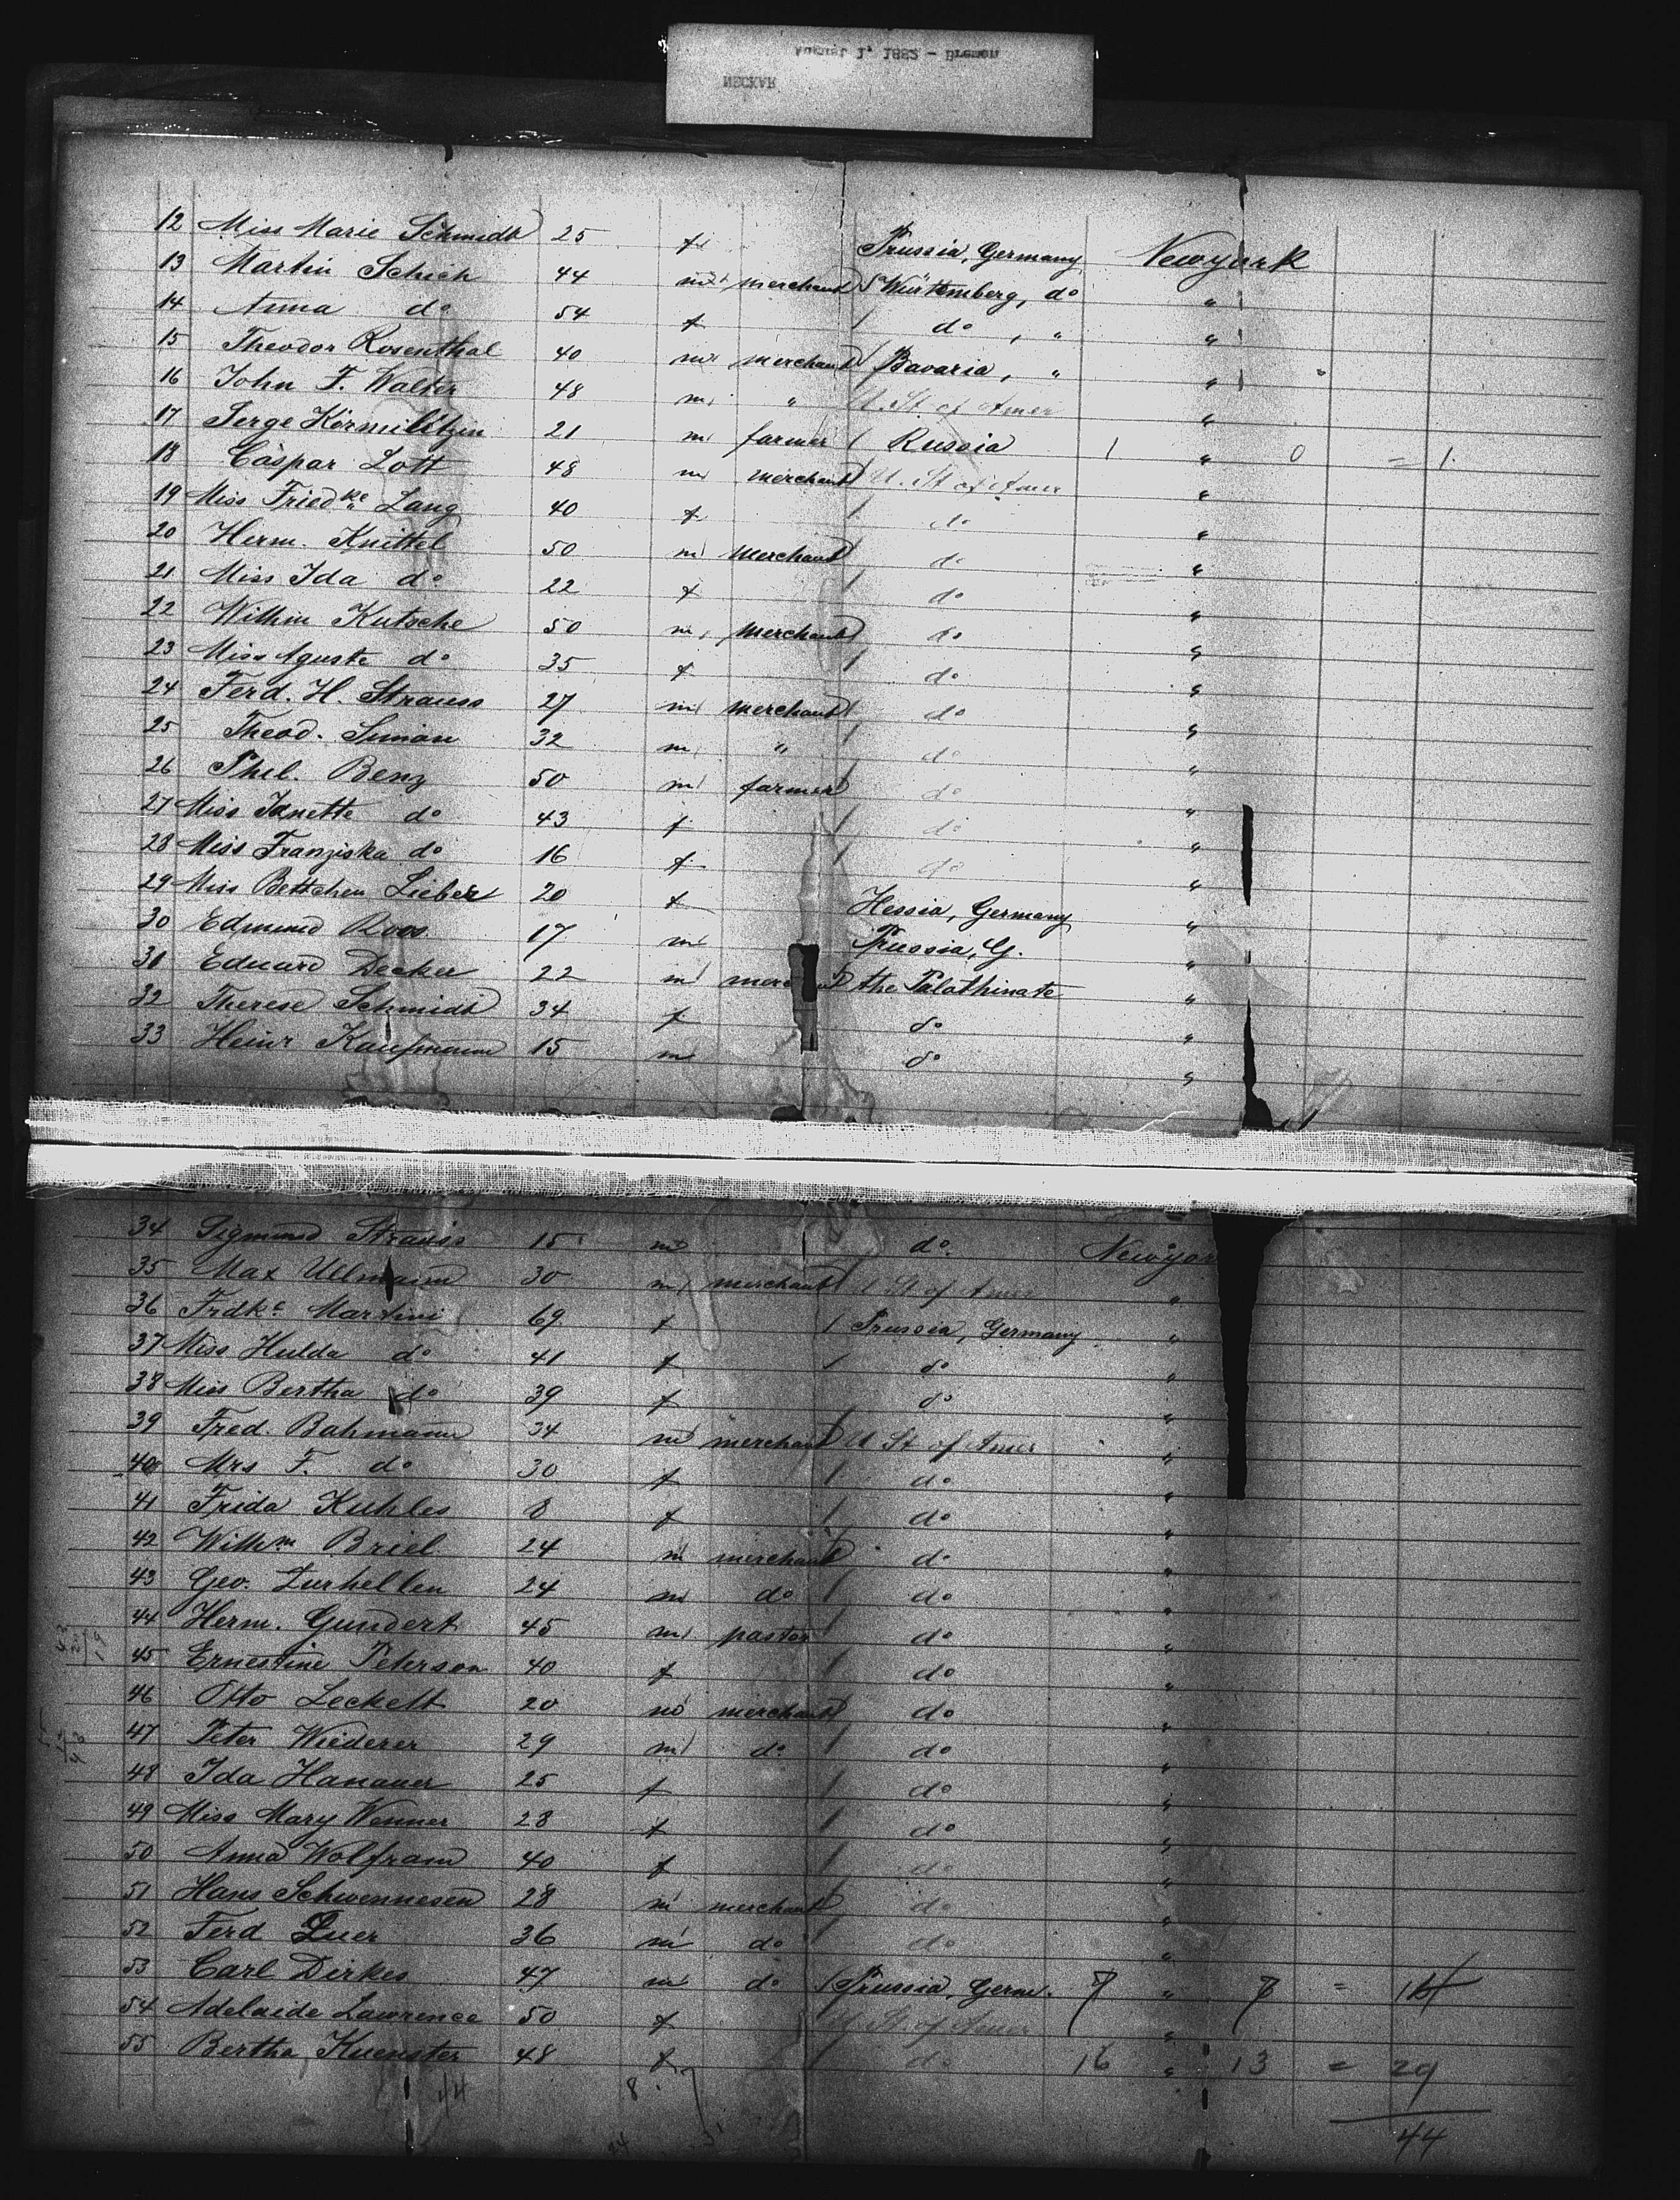 NECKAR
August 1, 1882 - Bremen
12 Miss Marie Schmidt 25 f Prussia, Germany Newyork
13 Martin Schich 44 m merchant Württemberg, do "
14 Anna do 54 f / do , " "
15 Theodor Rosenthal 40 m merchant Bavaria, " "
16 John F. Walter 48 m " U. St. of Amer "
17 Serge Körmilitzin 21 m farmer / Russia 1 " 0 = 1.
18 Caspar Lott 48 m merchant U. St of Amer "
19 Miss Friedke Lang 40 f / do "
20 Herm. Knittel 50 m merchant do "
21 Miss Ida do 22 f / do "
22 Wilhm Kutsche 50 m merchant do "
23 Miss Aguste do 35 f / do "
24 Ferd. H. Strauss 27 m merchant do "
25 Theod. Simon 32 m " / do "
26 Phil. Benz 50 m farmer do "
27 Miss Janette do 43 f / do "
28 Miss Franziska do 16 f / do "
29 Miss Bettchen Lieber 20 f Hessia, Germany "
30 Edmund Roos 17 m Prussia, G. "
31 Eduard Decker 22 m merchant the Palathinate "
32 Therese Schmidt 34 f do "
33 Heinr Kaufmann 15 m do "
34 Sigmund Strauss 15 m do. Newyor
35 Max Ullmann 30 m merchant U St of Amer "
36 Frdke Martini 69 f / Prussia, Germany "
37 Miss Hulda do 41 f / do "
38 Miss Bertha do 39 f do "
39 Fred. Bahmann 34 m merchant U St of Amer "
40 Mrs F. do 30 f / do "
41 Frida Kuhles 8 f / do "
42 Wilhm Briel 24 m merchant do "
43 Geo. Zurhellen 24 m do / do "
44 Herm. Gundert 45 m pastor / do "
45 Ernestine Peterson 40 f / do "
46 Otto Leckelt 20 m merchant do "
47 Peter Wiederer 29 m do / do "
48 Ida Hanauer 25 f / do "
49 Miss Mary Wenner 28 f / do "
50 Anna Wolfram 40 f / do "
51 Hans Schwennesen 28 m merchant do "
52 Ferd Duer 36 m do / do "
53 Carl Dirkes 47 m do / Prussia, Germ. 7 " 7 = 14
54 Adelaide Lawrence 50 f U. St. of Amer "
55 Bertha Kuenster 48 f / do 16 " 13 = 29
44 8. 44